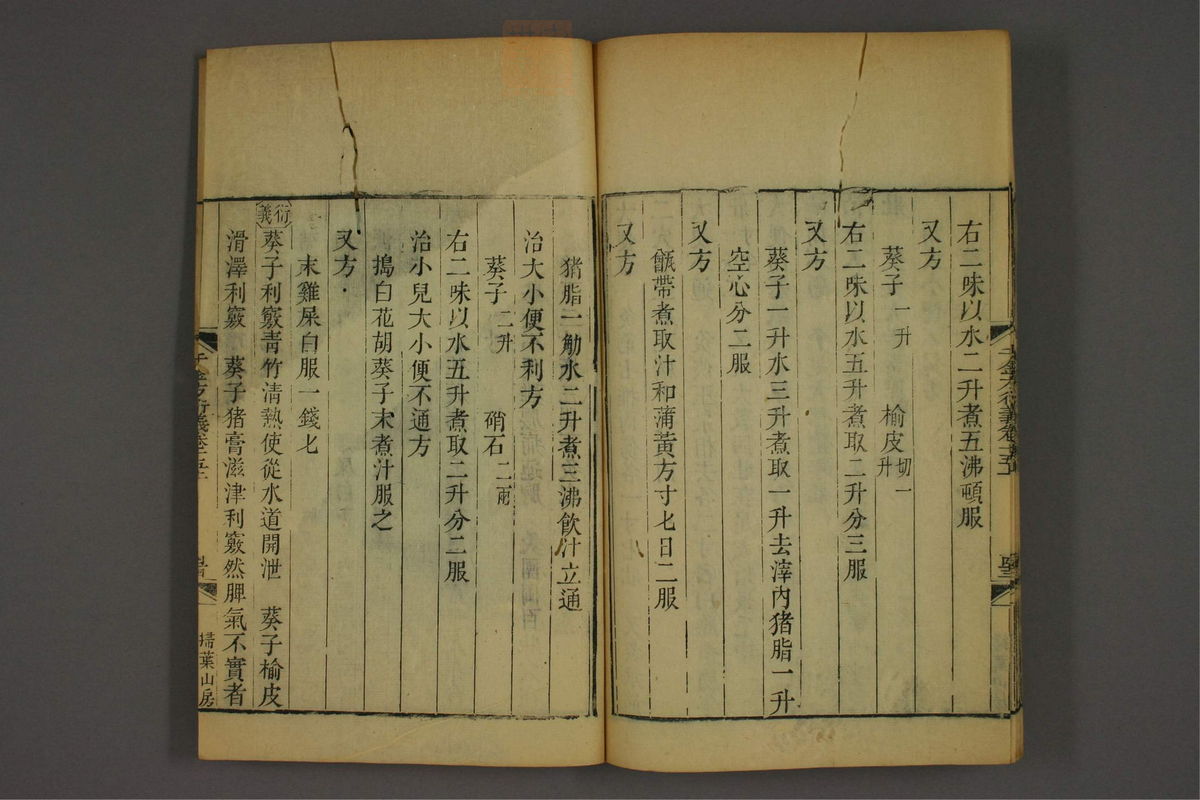 右二味以水二升煮五沸頓服
又方
葵子一升 榆皮切一升
右二味以水五升煮取二升分三服
又方
葵子一升水三升煮取一升去滓內猪脂一升
空心分二服
又方
甑帶煮取汁和蒲黃方寸匕日二服
又方
猪脂一觔水二升煮三沸飲汁立通
治大小便不利方
葵子二升 硝石二兩
右二味以水五升煮取二升分二服
治小兒大小便不通方
搗白花胡葵子末煮汁服之
又方
末雞屎白服一錢匕
衍義
葵子利竅青竹清熱使從水道開泄 葵子榆皮
滑澤利竅 葵子猪膏滋津利竅然脾氣不實者
千金方衍義卷十五
掃葉山房